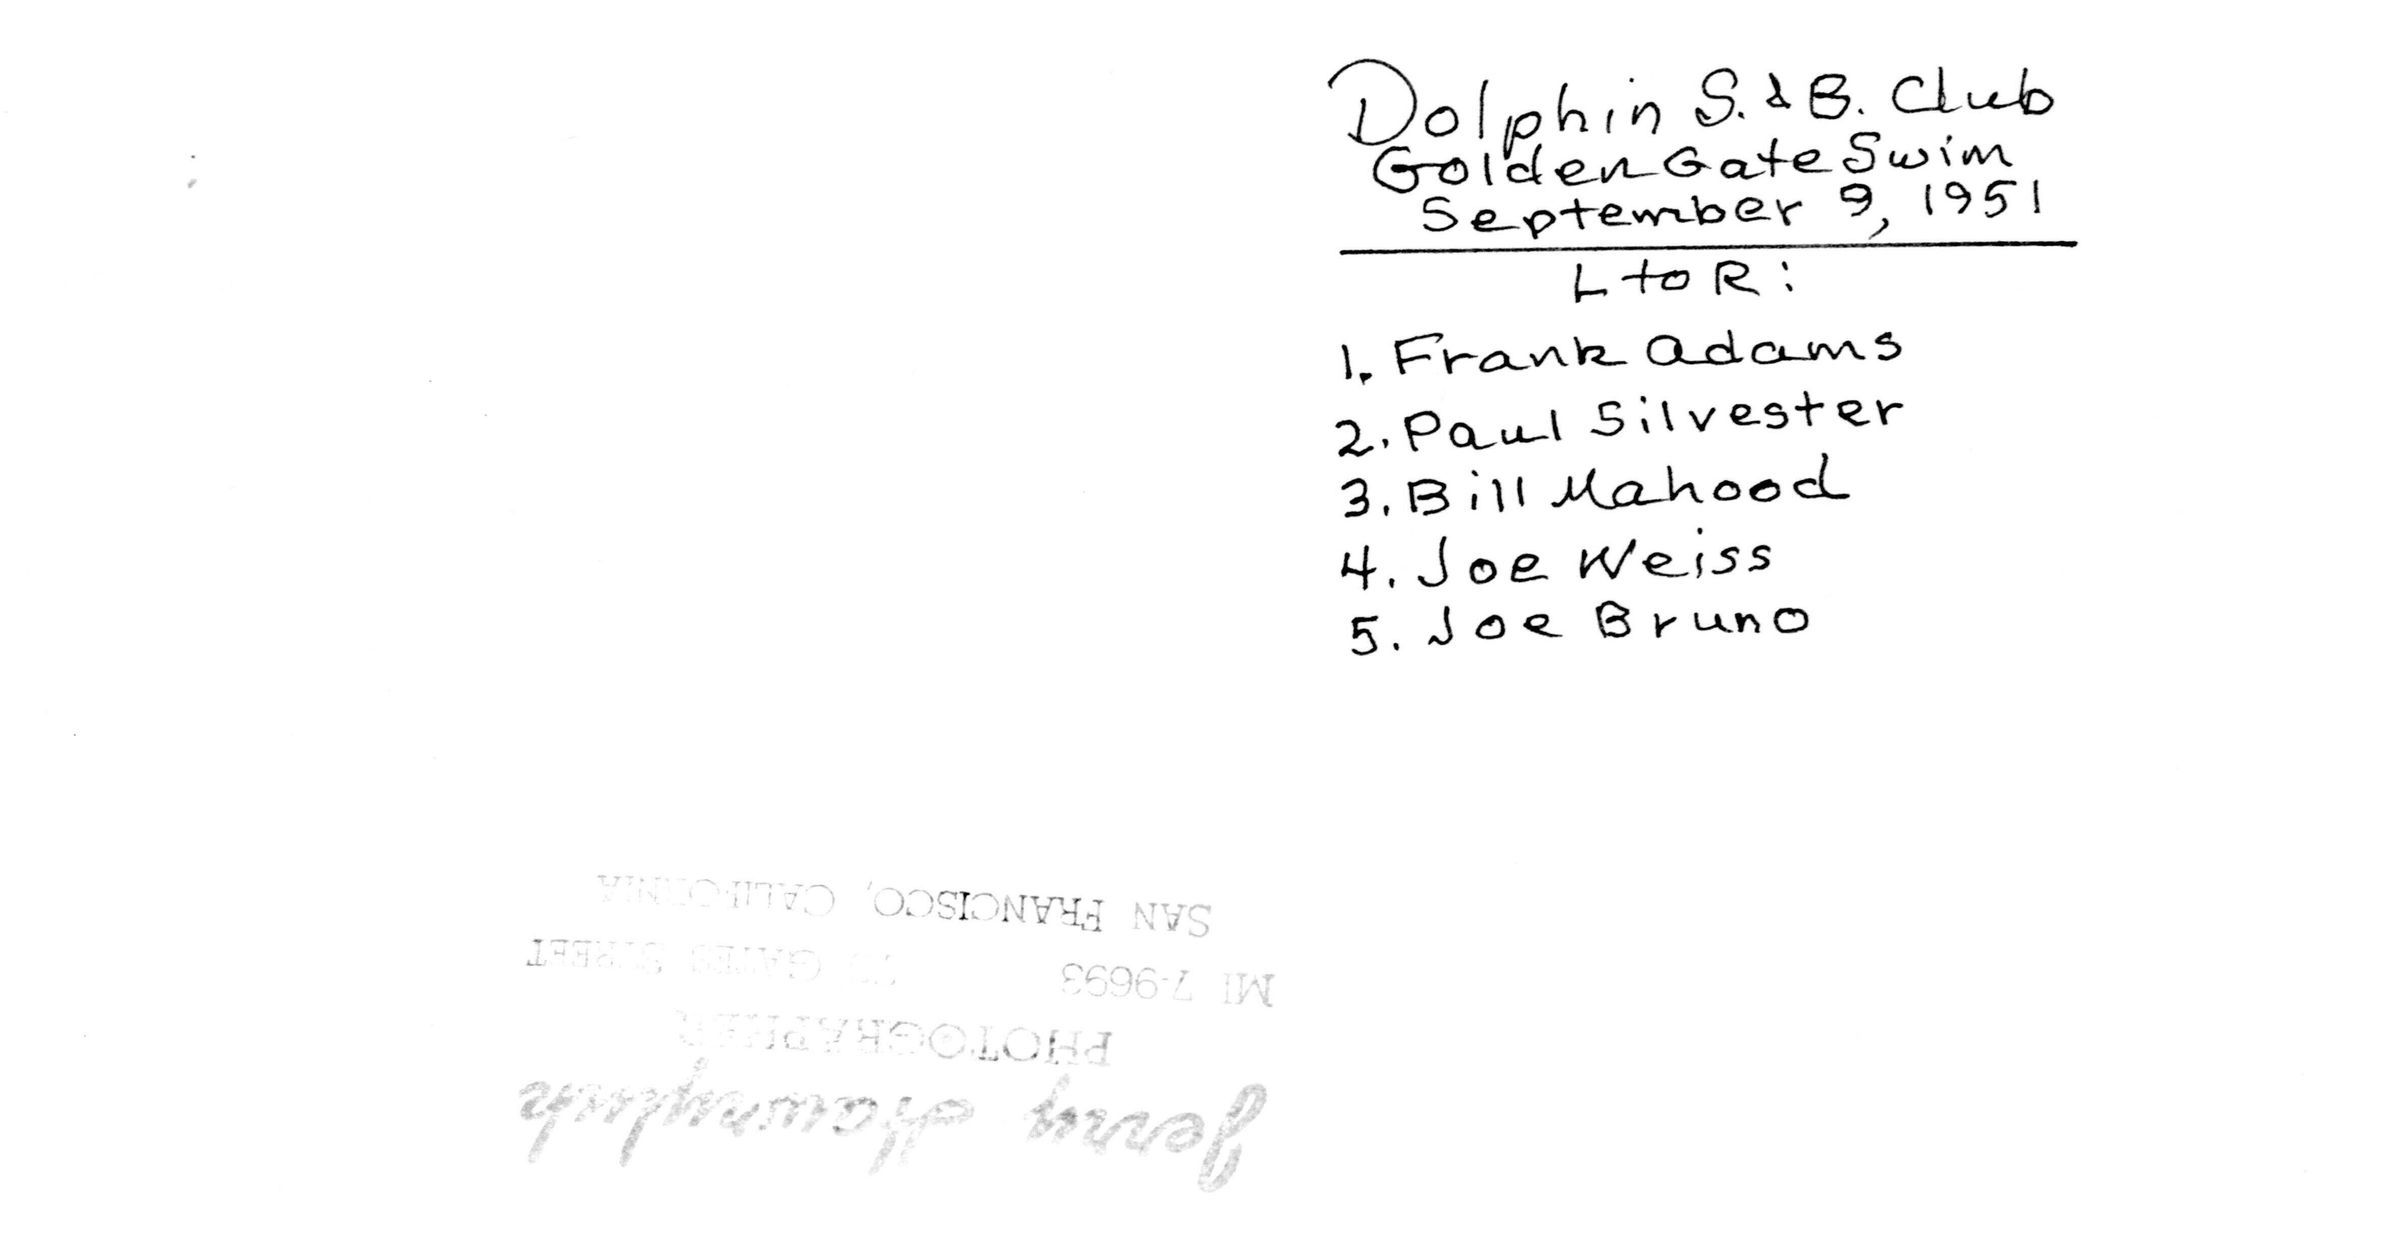 Dolphin S. & B. Club
Golden Gate Swim
September 9, 1951
L to R:
1. Frank Adams
2. Paul Silvester
3. Bill Mahood
4. Joe Weiss
5. Joe Bruno
Jerry
PHOTOGRAPHER
MI 7-9693 GATES STREET
SAN FRANCISCO, CALIFORNIA